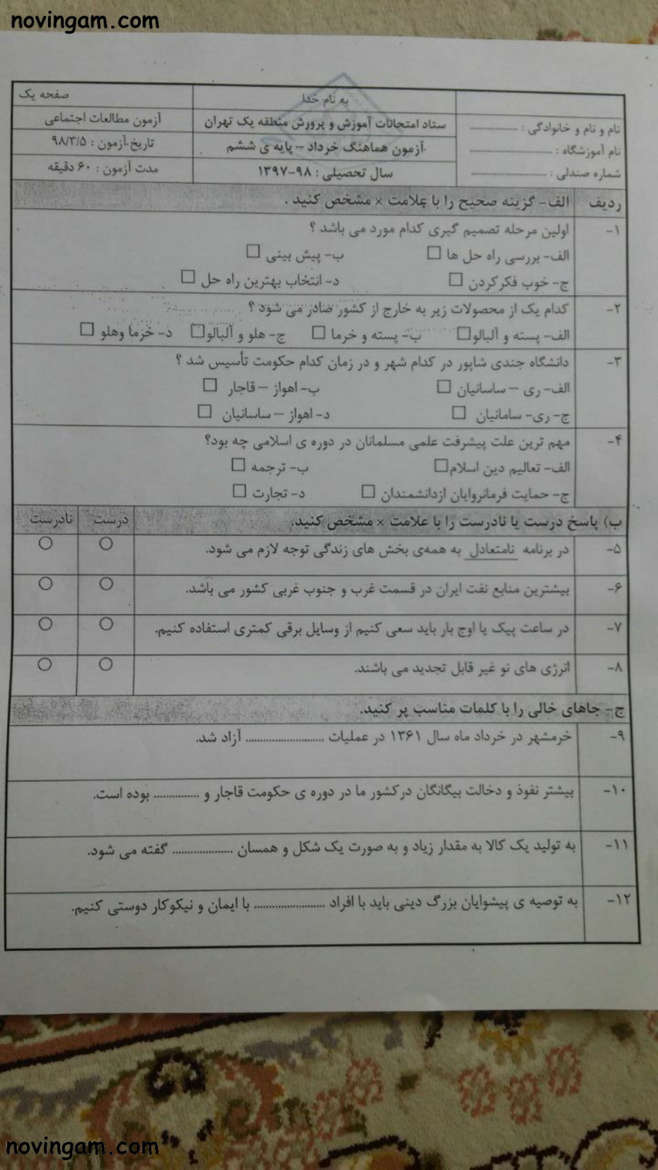 novingam.com
به نام خدا
صفحه یک
نام و نام و خانوادگی : ...............
ستاد امتحانات آموزش و پرورش منطقه یک تهران
آزمون مطالعات اجتماعی
نام آموزشگاه : ...............
آزمون هماهنگ خرداد – پایه ی ششم
تاریخ آزمون : ۹۸/۳/۵
شماره صندلی : ...............
سال تحصیلی : ۹۸-۱۳۹۷
مدت آزمون : ۶۰ دقیقه
ردیف
الف- گزینه صحیح را با علامت × مشخص کنید .
۱- اولین مرحله تصمیم گیری کدام مورد می باشد ؟
الف- بررسی راه حل ها □ ب- پیش بینی □
ج- خوب فکرکردن □ د- انتخاب بهترین راه حل □
۲- کدام یک از محصولات زیر به خارج از کشور صادر می شود ؟
الف- پسته و آلبالو □ ب- پسته و خرما □ ج- هلو و آلبالو □ د- خرما وهلو □
۳- دانشگاه جندی شاپور در کدام شهر و در زمان کدام حکومت تأسیس شد ؟
الف- ری – ساسانیان □ ب- اهواز – قاجار □
ج- ری- سامانیان □ د- اهواز – ساسانیان □
۴- مهم ترین علت پیشرفت علمی مسلمانان در دوره ی اسلامی چه بود؟
الف- تعالیم دین اسلام □ ب- ترجمه □
ج- حمایت فرمانروایان ازدانشمندان □ د- تجارت □
ب) پاسخ درست یا نادرست را با علامت × مشخص کنید. درست نادرست
۵- در برنامه نامتعادل به همه‌ی بخش های زندگی توجه لازم می شود. ○ ○
۶- بیشترین منابع نفت ایران در قسمت غرب و جنوب غربی کشور می باشد. ○ ○
۷- در ساعت پیک یا اوج بار باید سعی کنیم از وسایل برقی کمتری استفاده کنیم. ○ ○
۸- انرژی های نو غیر قابل تجدید می باشند. ○ ○
ج- جاهای خالی را با کلمات مناسب پر کنید.
۹- خرمشهر در خرداد ماه سال ۱۳۶۱ در عملیات .......................... آزاد شد.
۱۰- بیشتر نفوذ و دخالت بیگانگان درکشور ما در دوره ی حکومت قاجار و ............... بوده است.
۱۱- به تولید یک کالا به مقدار زیاد و به صورت یک شکل و همسان .................... گفته می شود.
۱۲- به توصیه ی پیشوایان بزرگ دینی باید با افراد ........................ با ایمان و نیکوکار دوستی کنیم.
novingam.com